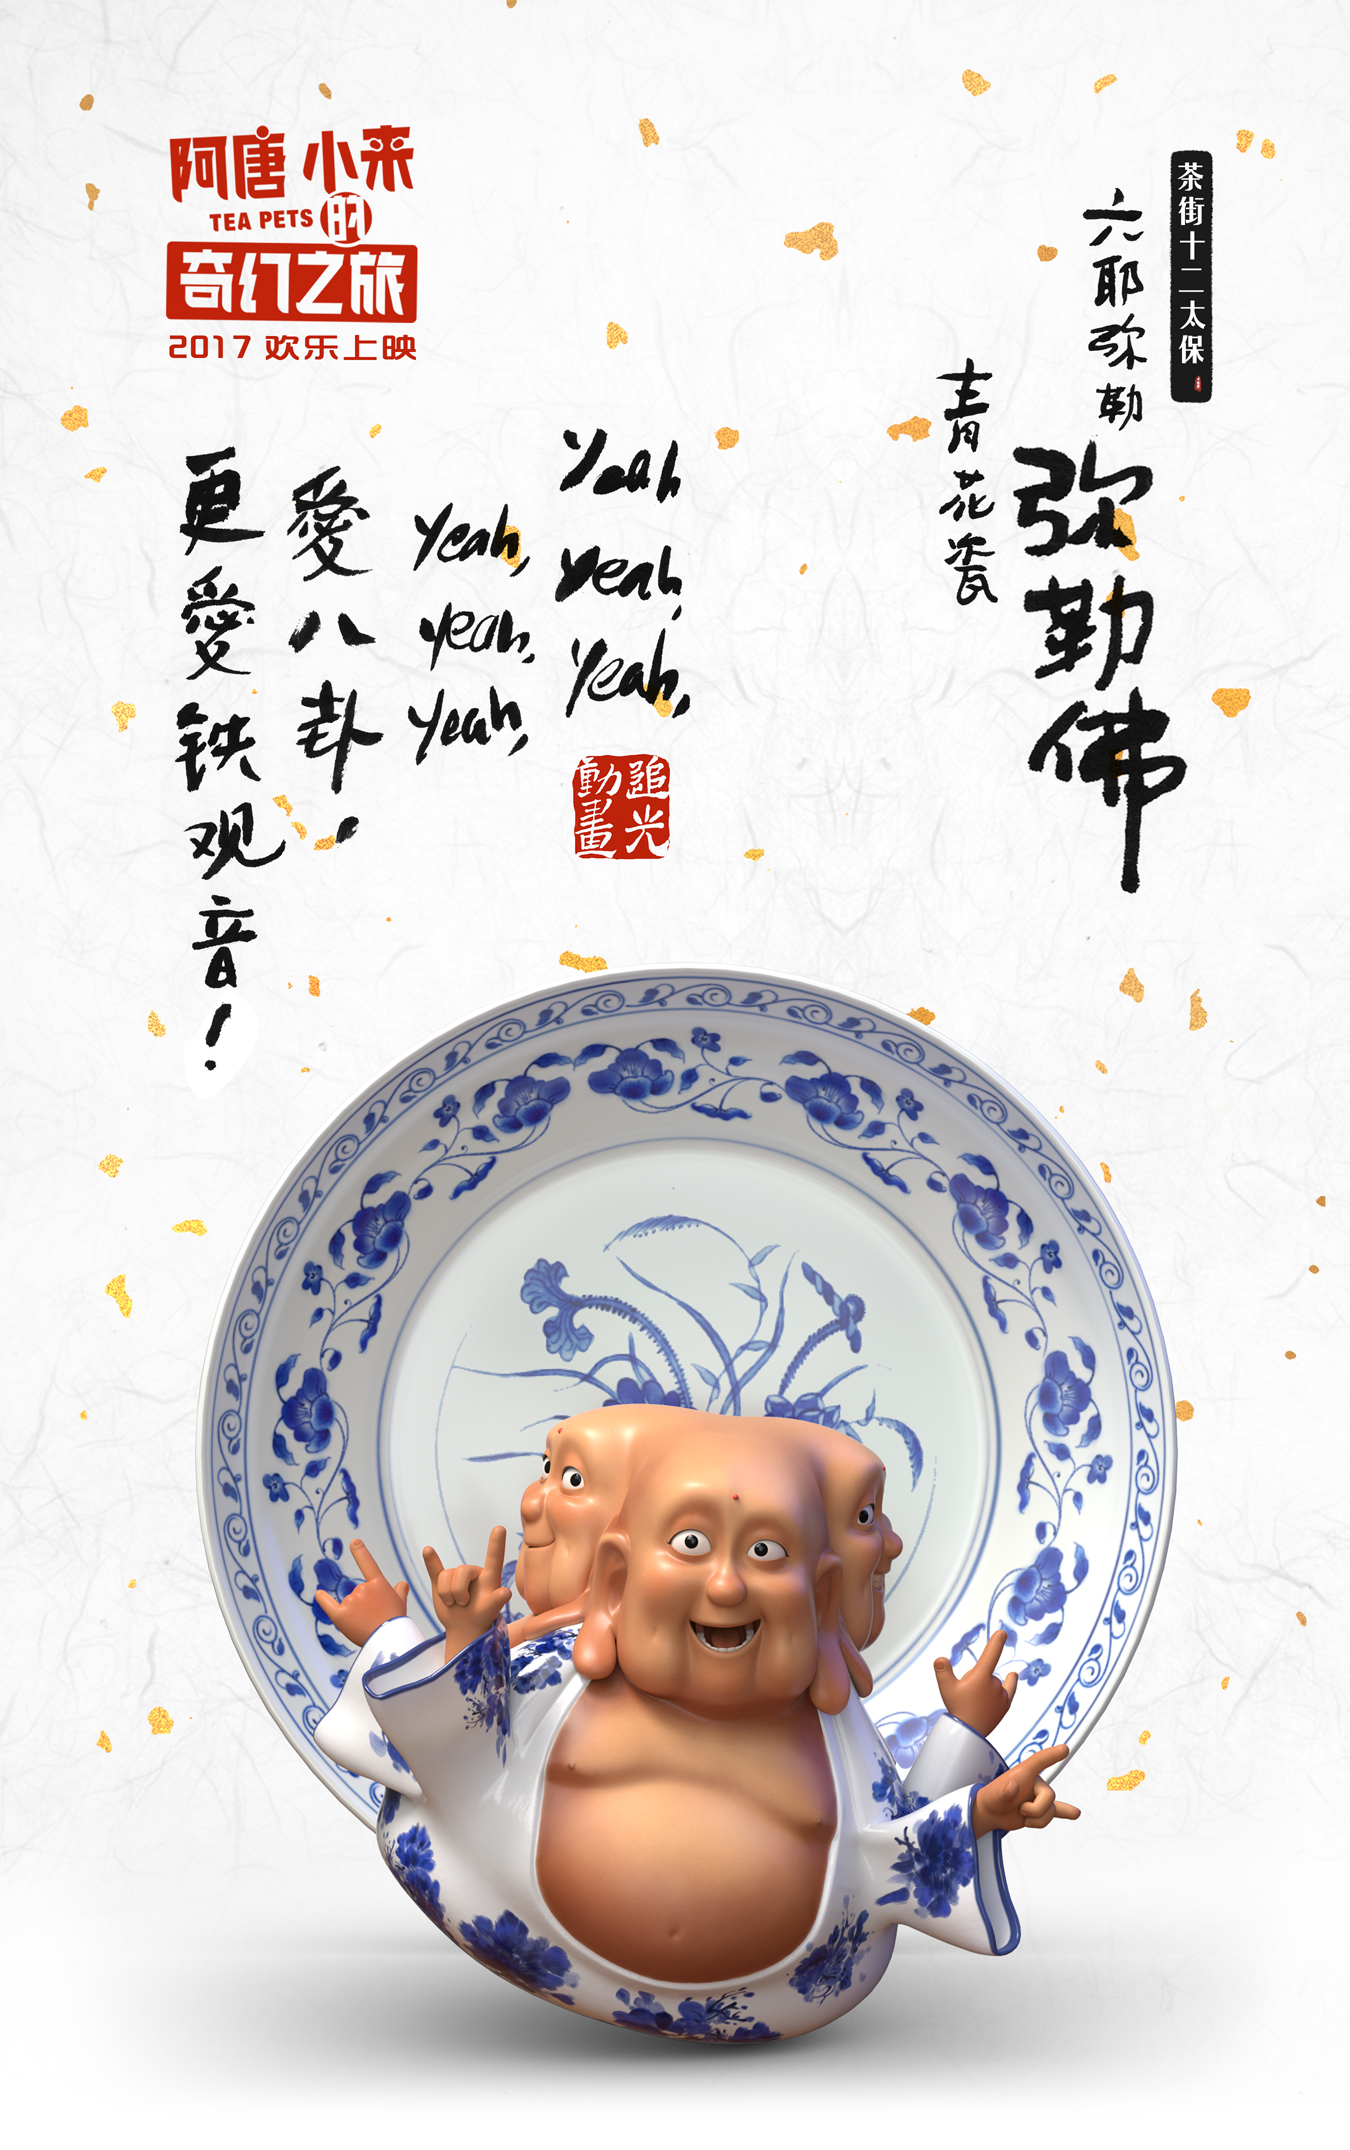 阿唐 小来
TEA PETS 的
奇幻之旅
2017 欢乐上映
茶街十二太保
六耶弥勒
弥勒佛
青花瓷
Yeah
yeah,
Yeah,
yeah,
yeah,
yeah,
愛八卦,
更愛铁观音!
追光
動畫